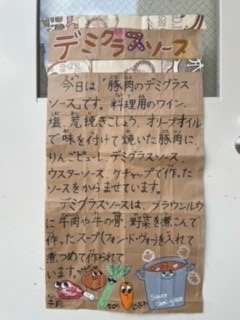 デミグラスソース
今日は「豚肉のデミグラス
ソース」です。料理用のワイン、
塩、荒挽きこしょう、オリーブオイル
で味を付けて焼いた豚肉に、
りんごピューレ、デミグラスソース、
ウスターソース、ケチャップで作った
ソースをからませています。
デミグラスソースは、ブラウンルウ
に牛肉や牛の骨、野菜を煮こんで
作ったスープ(フォンドヴォー)を入れて
煮つめて作られて
います。